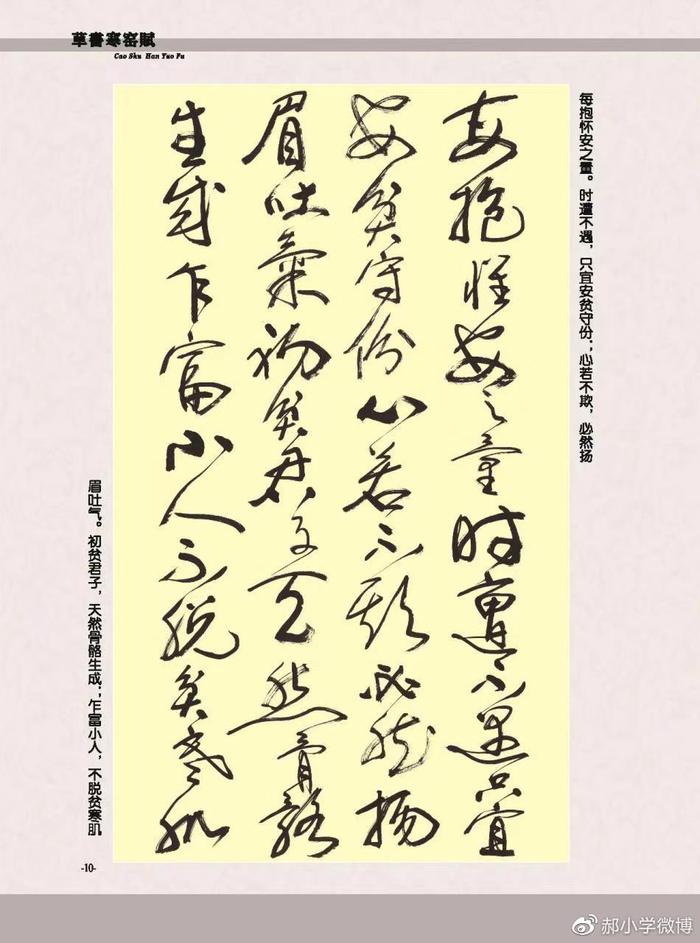 草書寒窑賦
Cao Shu Han Yao Fu
每抱怀安之量。时遭不遇，只宜安贫守份；心若不欺，必然扬
每抱怀安之量时遭不遇只宜
安贫守份心若不欺必然扬
眉吐氣初贫君子天然骨骼
生成乍富小人不脱贫寒肌
眉吐气。初贫君子，天然骨骼生成；乍富小人，不脱贫寒肌
-10-
郝小学微博